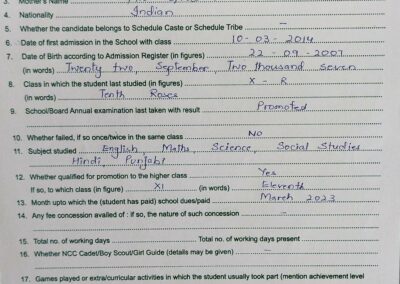 3. Mother's Name
4. Nationality Indian
5. Whether the candidate belongs to Schedule Caste or Schedule Tribe –
6. Date of first admission in the School with class 10-03-2014
7. Date of Birth according to Admission Register (in figures) 22-09-2007
(in words) Twenty two, September, Two thousand seven
8. Class in which the student last studied (in figures) X - R
(in words) Tenth Roses
9. School/Board Annual examination last taken with result Promoted
10. Whether failed, if so once/twice in the same class NO
11. Subject studied English Maths, Science, Social Studies
Hindi, Punjabi
12. Whether qualified for promotion to the higher class Yes
If so, to which class (in figure) XI (in words) Eleventh
13. Month upto which the (student has paid) school dues/paid March 2023
14. Any fee concession availed of : if so, the nature of such concession –
15. Total No. of working days Total No. of working days present
16. Whether NCC Cadet/Boy Scout/Girl Guide (details may be given) –
17. Games played or extra/curricular activities in which the student usually took part (mention achievement level